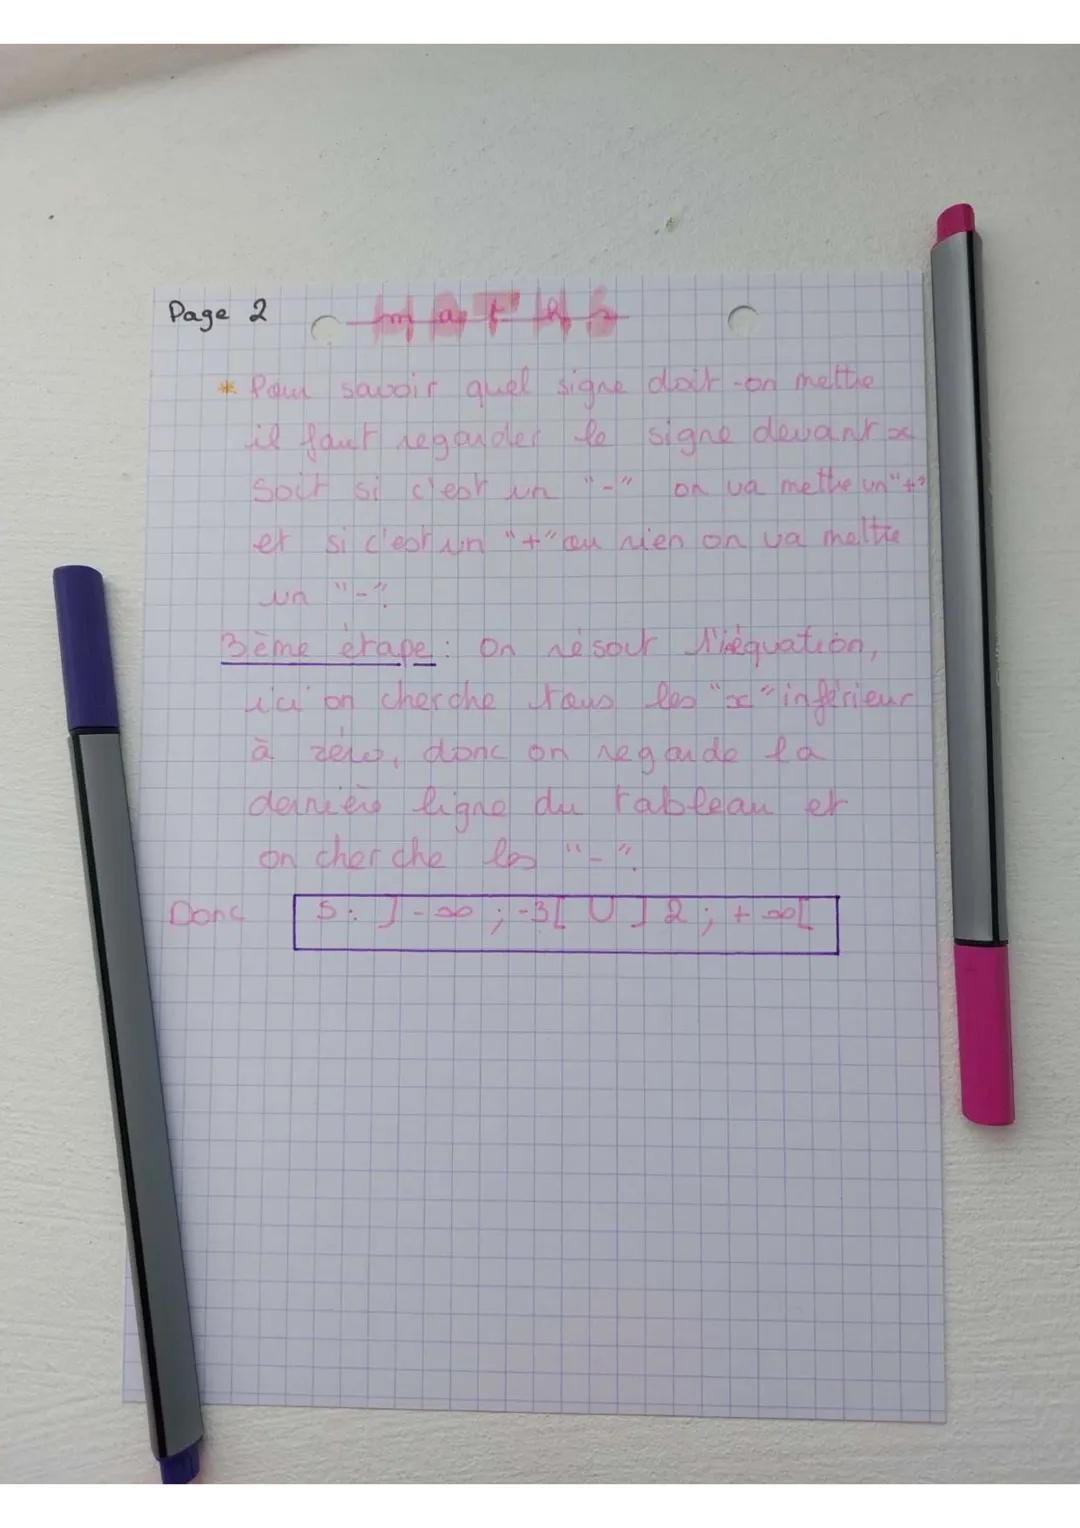 Page 2
maths
* Pour savoir quel signe doit-on mettre
il faut regarder le signe devant x
soit si c'est un "-" on va mettre un "+"
et si c'est un "+" ou rien on va mettre
un "-".
3ème étape : On résout l'inéquation,
ici on cherche tous les "x" inférieur
à zéro, donc on regarde la
dernière ligne du tableau et
on cherche les "-".
Donc S: ]-∞ ; -3[ U ] 2 ; + ∞[